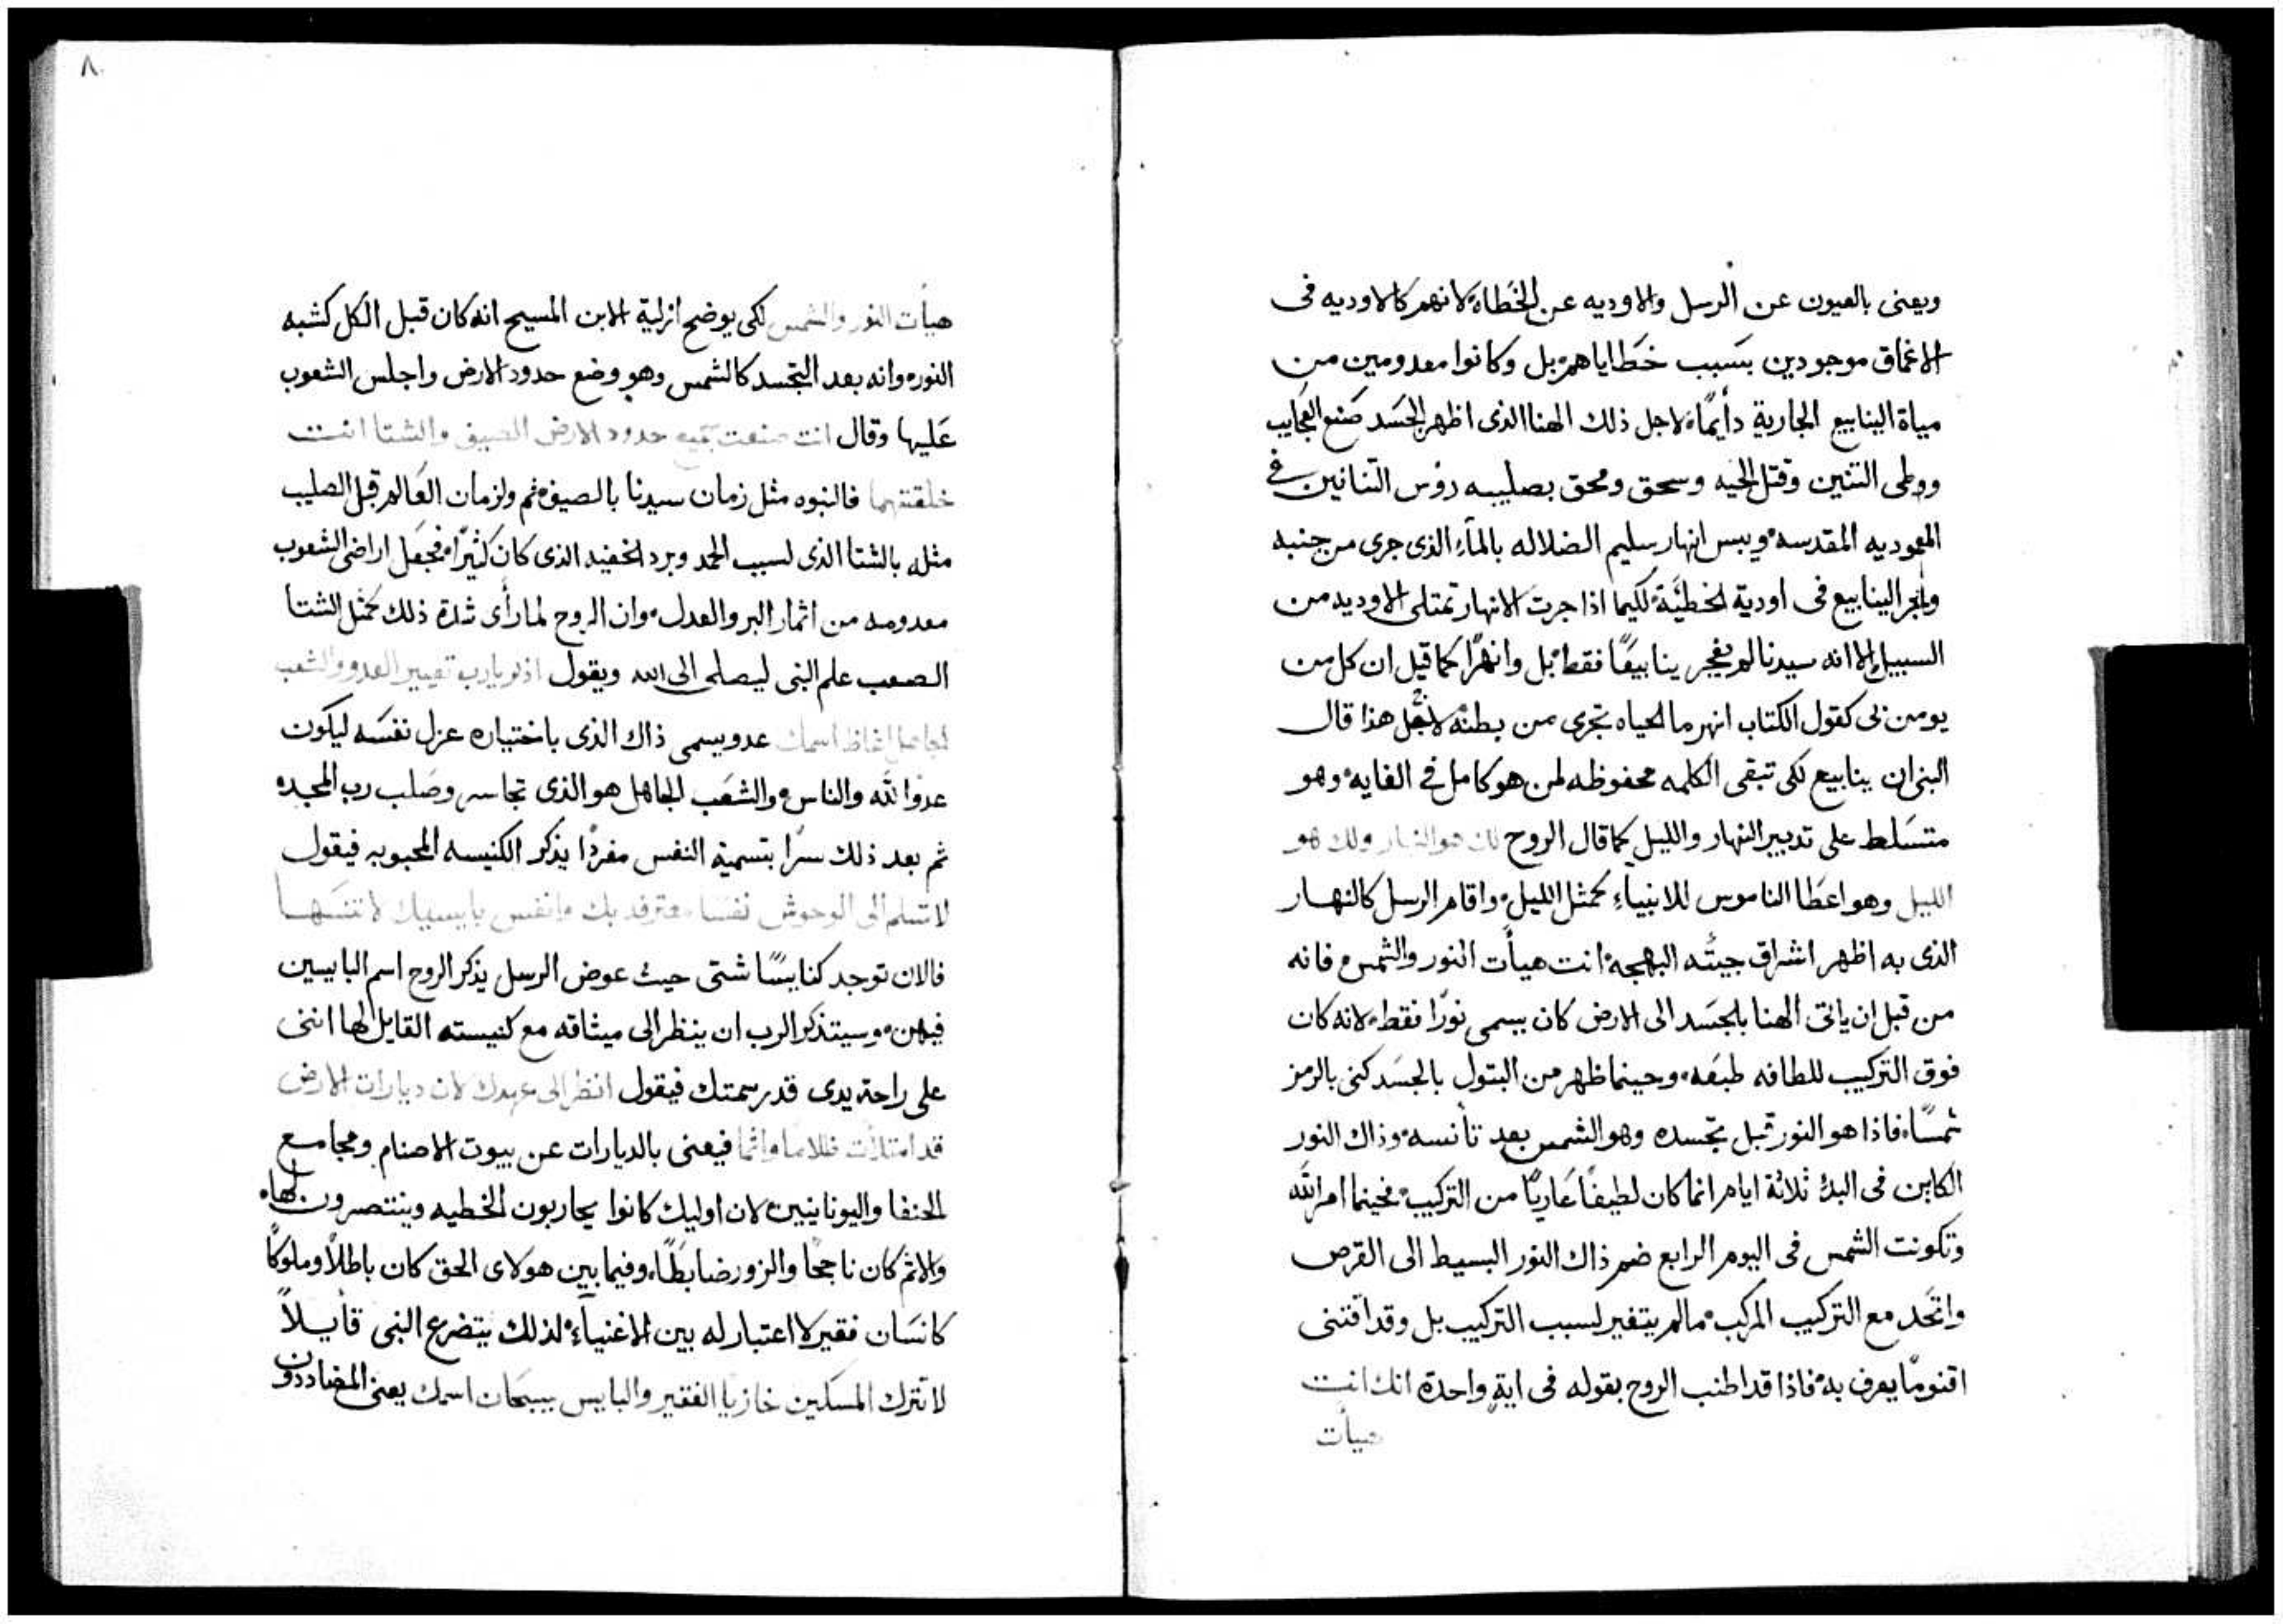 ويعنى بالعيون عن الرسل والاوديه عن الخطاه لانهم كالاوديه فى
الاغماق موجودين بسبب خطاياهم بل وكانوا معدومين من
مياة الينابيع الجارية دأيمًا لاجل ذلك الهنا الذى اظهر الجسد صنع العجايب
ووطى التنين وقتل الحيه وسحق ومحق بصليبه رؤس التنانين فى
المعموديه المقدسه ويبس انهار سليم الضلاله بالمآء الذى جرى من جنبه
وافجر الينابيع فى اودية الخطيَّة لكيما اذا جرت الانهار تمتلى الاوديه من
السبيل الا انه سيدنا لم يفجر ينابيعًا فقط بل وانهرًا كما قيل ان كل من
يومن بى كقول الكتاب انهر ما الحياه تجرى من بطنه لاجل هذا قال
النبى ان ينابيع لكى تبقى الكلمه محفوظه لمن هو كامل فى الغايه وهو
متسلط على تدبير النهار والليل كما قال الروح لك هو النهار ولك هو
الليل وهو اعطا الناموس للانبياء كمثل الليل واقام الرسل كالنهار
الذى به اظهر اشراق جيئته البهجه انت هيأت النور والشمس فانه
من قبل ان ياتى الهنا بالجسد الى الارض كان يسمى نورًا فقط لانه كان
فوق التركيب للطافه طبعه وحينما ظهر من البتول بالجسد كنى بالرمز
شمسًا فاذا هو النور قبل تجسده وهو الشمس بعد تأنسه وذاك النور
الكاين فى البدء ثلاثة ايام انما كان لطيفًا عاريًا من التركيب فحينما امر الله
وتكونت الشمس فى اليوم الرابع ضم ذاك النور البسيط الى القرص
واتحد مع التركيب المركب ما لم يتغير لسبب التركيب بل وقد اقتنى
اقنومًا يعرف به فاذا قد اطنب الروح بقوله فى اية واحدة انك انت
هيأت
٨
هيأت النور والشمس لكى يوضح ازلية الابن المسيح انه كان قبل الكل كشبه
النور وانه بعد التجسد كالشمس وهو وضع حدود الارض واجلس الشعوب
عليها وقال انت صنعت جميع حدود الارض الصيف والشتا انت
خلقتهما فالنبوه مثل زمان سيدنا بالصيف ثم ولزمان العالم قبل الصليب
مثله بالشتا الذى لسبب الجمد وبرد الذى كان كثيرًا فجعل اراضى الشعوب
معدومه من اثمار البر والعدل وان الروح لما رأى شدة ذلك كمثل الشتا
الصعب علم النبى ليصلى الى الله ويقول اذكر يارب تعيير العدو والشعب
الجاهل اغاظ اسمك عدو يسمى ذاك الذى باختياره عزل نفسه ليكون
عدوا لله والناس والشعب الجاهل هو الذى تجاسر وصلب رب المجد
ثم بعد ذلك سرًا بتسمية النفس مفردًا يذكر الكنيسه المحبوبه فيقول
لا تسلم الى الوحوش نفسًا معترفه بك وانفس بايسيك لا تنسها
فالان توجد كنايسًا شتى حيث عوض الرسل يذكر الروح اسم البايسين
فيهن وسيتذكر الرب ان ينظر الى ميثاقه مع كنيسته القايل لها اننى
على راحة يدى قد رسمتك فيقول انظر الى عهدك لان ديارات الارض
قد امتلأت ظلاما واثما فيعنى بالديارات عن بيوت الاصنام ومجامع
الحنفا واليونانيين لان اوليك كانوا يحاربون الخطيه وينتصرون لها
والاثم كان ناجحًا والزور ضابطًا وفيما بين هولاى الحق كان باطلًا وملوكًا
كانسان فقير لا اعتبار له بين الاغنيآء لذلك يتضرع النبى قايلاً
لا تترك المسكين خازيا الفقير والبايس يسبحان اسمك يعنى المضاددون